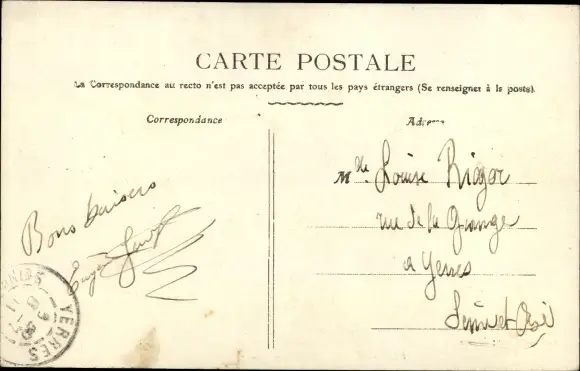 CARTE POSTALE
La Correspondance au recto n'est pas acceptée par tous les pays étrangers (Se renseigner à la poste).
Correspondance
Adresse
Bons baisers
Eugène
Mlle Louise
rue de la Grange
a Yerres
Seine et Oise
YERRES